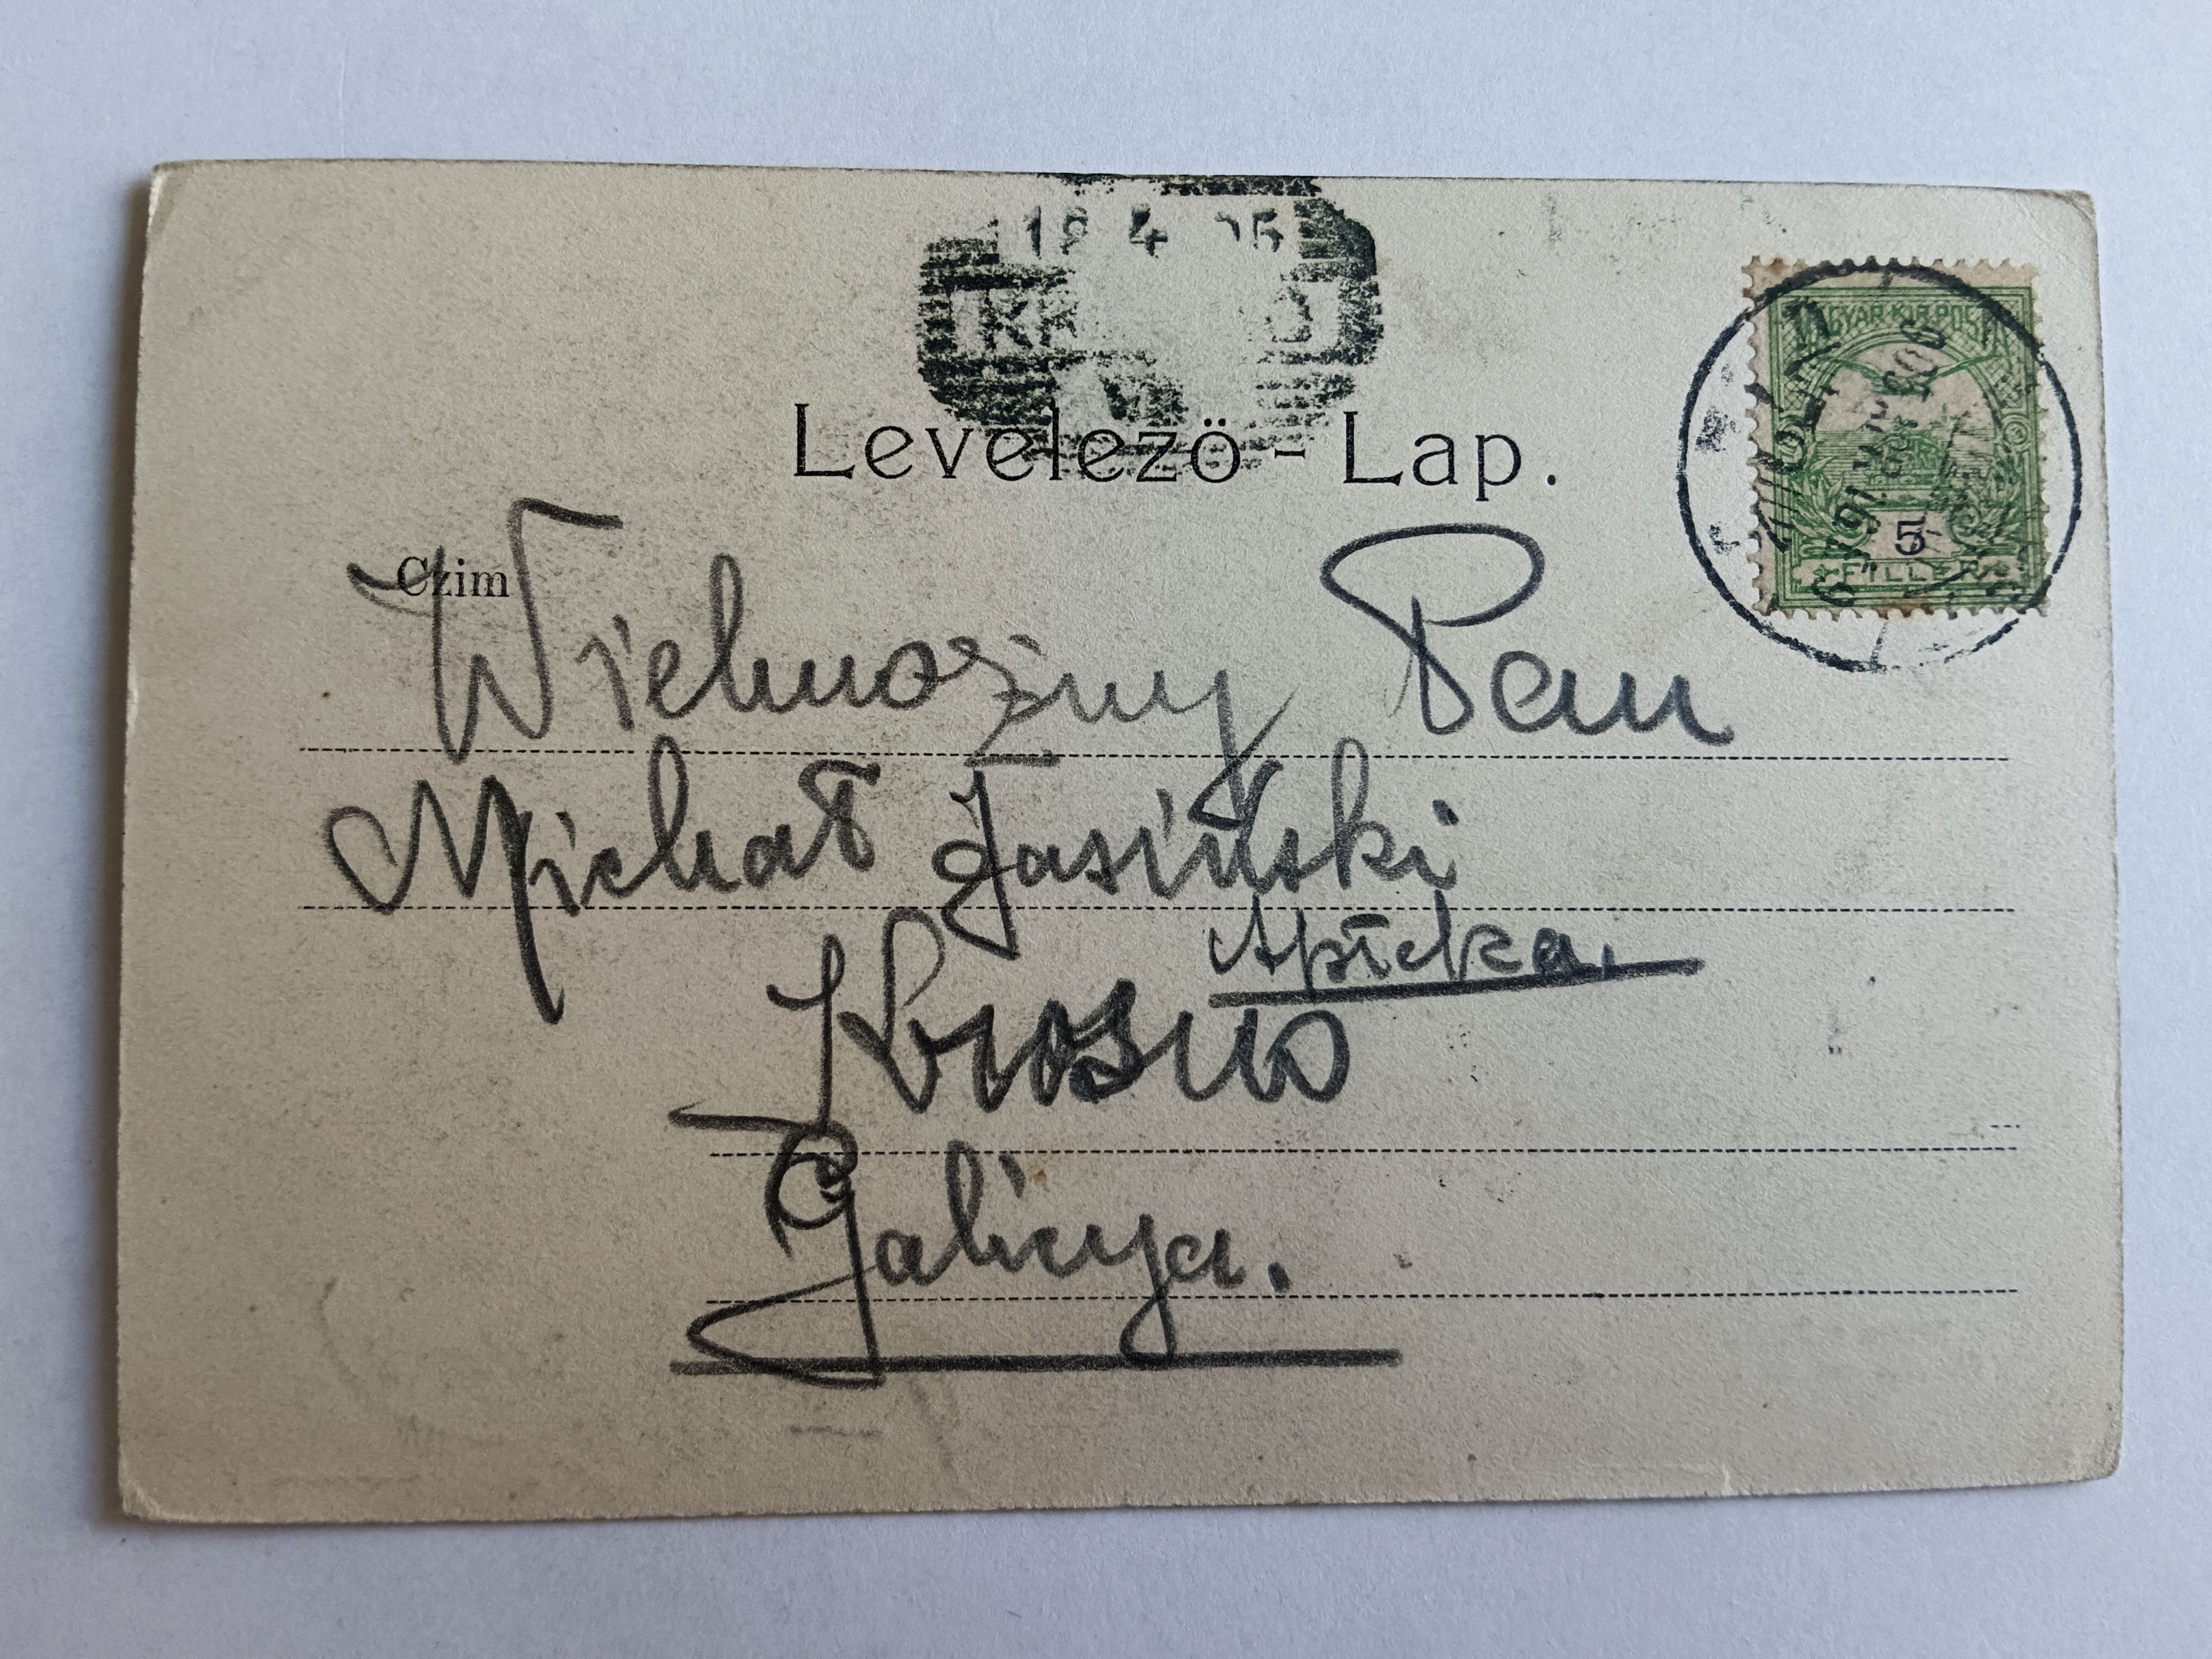 18 4 05
Levelezö-Lap.
MAGYAR·KIR·POSTA
5
FILLER
Czim
Wielmożny Pan
Michał Jasiński
Apteka.
Krosno
Galicya.